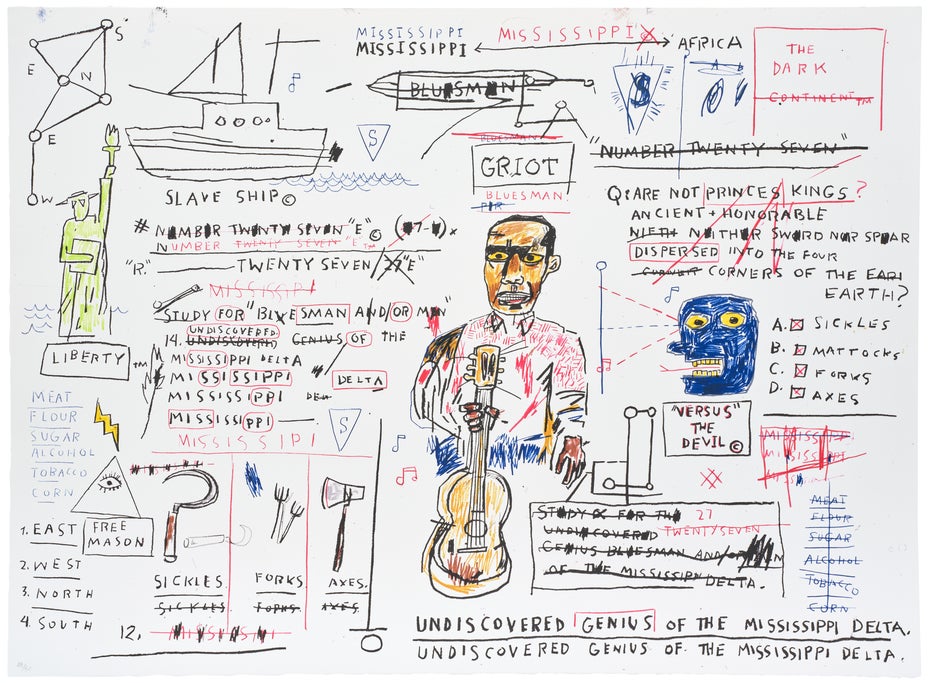 S
E
N
E
W
MISSISSIPPI
MISSISSIPPI
MISSISSIPPI
AFRICA
THE
DARK
CONTINENT™
BLUESMAN
S
$
"NUMBER TWENTY SEVEN"
BLUESMAN
GRIOT
BLUESMAN
SLAVE SHIP©
# NUMBER TWENTY SEVEN "E" ©
NUMBER TWENTY SEVEN "E"™
"R." TWENTY SEVEN / 27 "E"
MISSISSIPI
STUDY FOR "BLUESMAN AND/OR MEN"
UNDISCOVERED
14. UNDISCOVERD GENIUS OF THE
MISSISSIPPI DELTA
MISSISSIPPI DELTA
MISSISSIPPI DELTA
MISSISSIPPI
MISSISSIPI
S
LIBERTY™
MEAT
FLOUR
SUGAR
ALCOHOL
TOBACCO
CORN
FREE
MASON
1. EAST
2. WEST
3. NORTH
4. SOUTH
SICKLES.
SICKLES
FORKS.
FORKS.
AXES.
AXES.
12.
Q: ARE NOT PRINCES KINGS?
ANCIENT + HONORABLE
NIETH NEITHER SWORD NOR SPEAR
DISPERSED INTO THE FOUR
CORNERS OF THE EARI
EARTH?
A. SICKLES
B. MATTOCKS
C. FORKS
D. AXES
"VERSUS"
THE
DEVIL©
MISSISSIP
MISSISSIPI
STUDY FOR THE 27
UNDISCOVERED TWENTYSEVEN
GENIUS BLUESMAN AND/OR
OF THE MISSISSIPPI DELTA.
MEAT
FLOUR
SUGAR
ALCOHOL
TOBACCO
CORN
UNDISCOVERED GENIUS OF THE MISSISSIPPI DELTA.
UNDISCOVERED GENIUS OF THE MISSISSIPPI DELTA.